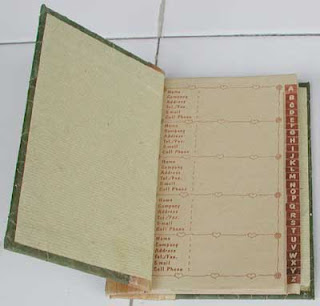 Name :
Company :
Address :
Tel./Fax. :
E-mail :
Cell Phone :
Name :
Company :
Address :
Tel./Fax. :
E-mail :
Cell Phone :
Name :
Company :
Address :
Tel./Fax. :
E-mail :
Cell Phone :
Name :
Company :
Address :
Tel./Fax. :
E-mail :
Cell Phone :
Name :
Company :
Address :
Tel./Fax. :
E-mail :
Cell Phone :
A
B
C
D
E
F
G
H
I
J
K
L
M
N
O
P
Q
R
S
T
U
V
W
X
Y
Z